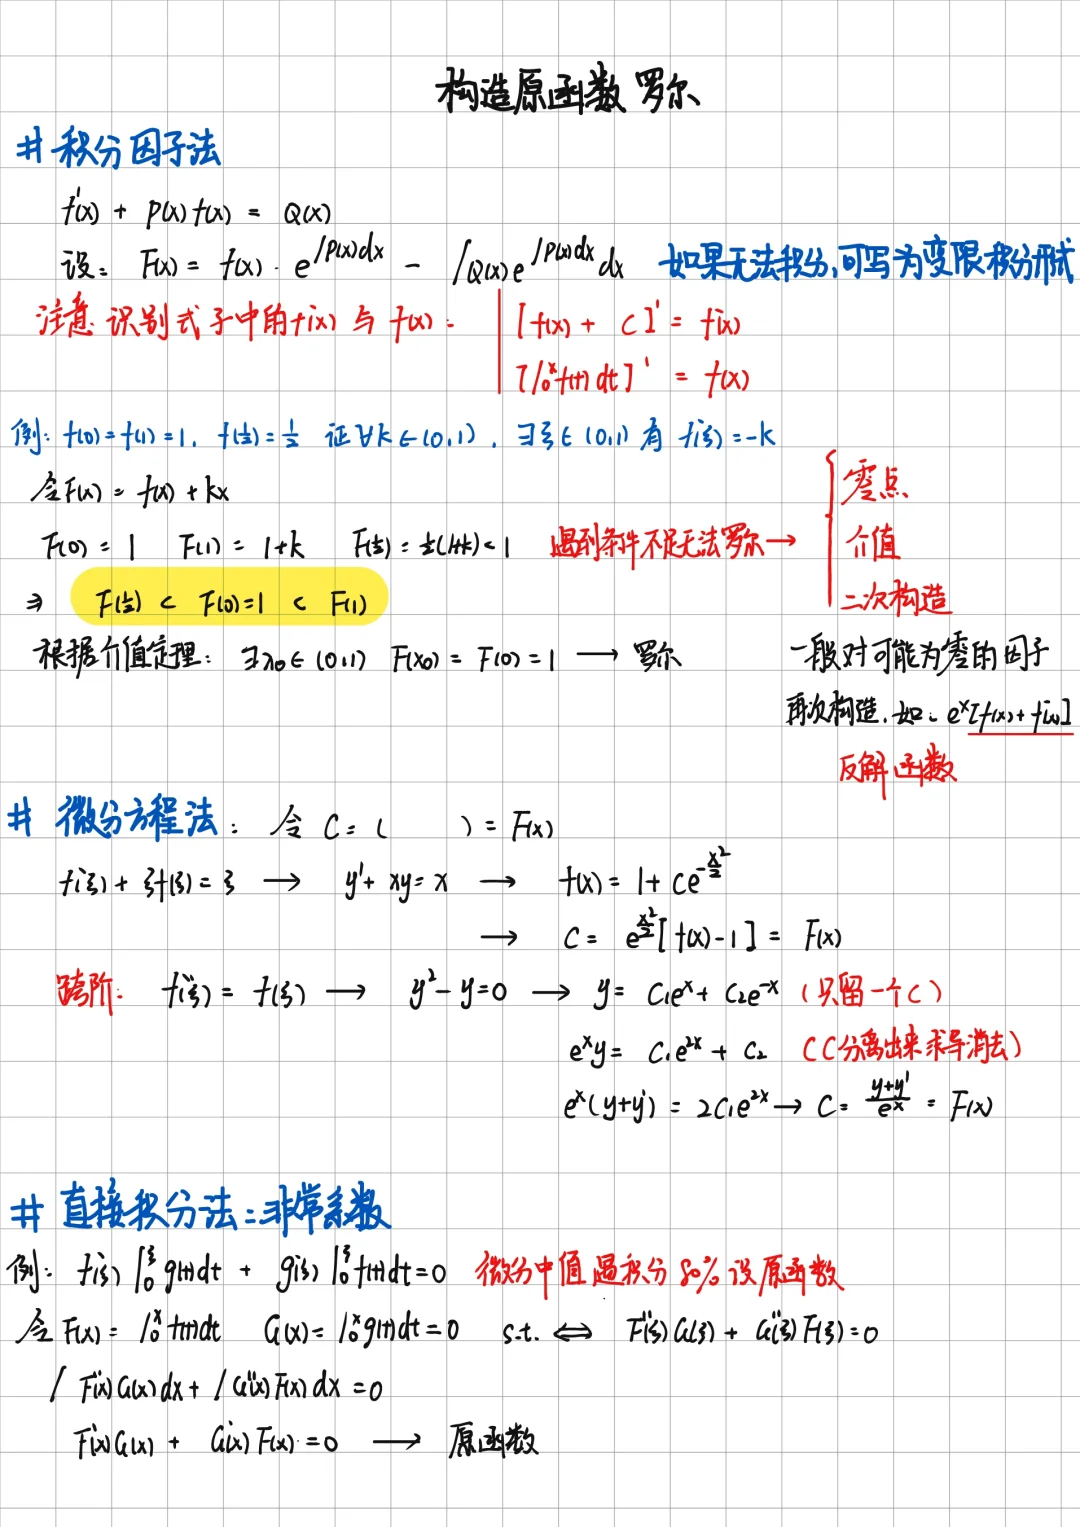 构造原函数 罗尔
# 积分因子法
f'(x) + P(x)f(x) = Q(x)
设: F(x) = f(x)·e^∫P(x)dx - ∫Q(x)e^∫P(x)dx dx 如果无法积分,可写为变限积分形式
注意 识别式子中的f'(x) 与 f(x): [f(x) + C]' = f'(x)
[∫₀ˣf(t)dt]' = f(x)
例: f(0)=f(1)=1, f(½)=½ 证∀k∈(0,1), ∃ξ∈(0,1)有 f'(ξ)=-k
令F(x) = f(x)+kx
F(0) = 1 F(1) = 1+k F(½) = ½(1+k)<1 遇到条件不足无法罗尔→
零点
介值
二次构造
⇒ F(½) < F(0)=1 < F(1)
根据介值定理: ∃x₀∈(0,1) F(x₀) = F(0) = 1 → 罗尔
一般对可能为零的因子
再次构造,如: eˣ[f(x)+f'(x)]
反解函数
# 微分方程法: 令 C = ( ) = F(x)
f'(ξ) + ξf(ξ) = ξ → y'+ xy = x → f(x) = 1+ ce^-x²/2
→ C = e^x²/2[f(x)-1] = F(x)
跨阶: f''(ξ) = f(ξ) → y²-y=0 → y = C₁eˣ+ C₂e⁻ˣ (只留一个C)
eˣy = C₁e²ˣ + C₂ (C分离出来求导消去)
eˣ(y+y') = 2C₁e²ˣ → C = y+y'/eˣ = F(x)
# 直接积分法:非常系数
例: f'(ξ)∫₀^ξ g(t)dt + g'(ξ)∫₀^ξ f(t)dt=0 微分中值遇积分80%设原函数
令F(x) = ∫₀ˣf(t)dt G(x) = ∫₀ˣg(t)dt = 0 s.t. ⇔ F''(ξ)G(ξ) + G''(ξ)F(ξ)=0
∫F''(x)G(x)dx + ∫G''(x)F(x)dx = 0
F'(x)G(x) + G'(x)F(x) = 0 → 原函数